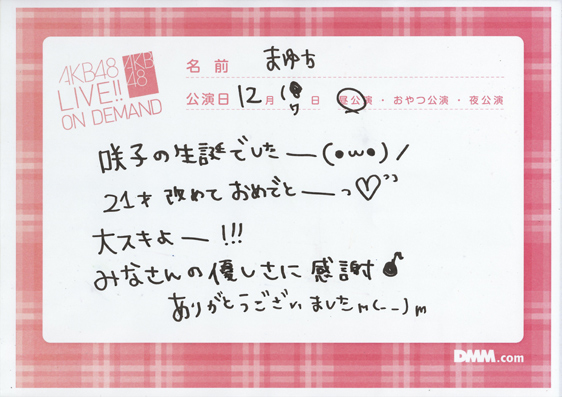 AKB48 LIVE!! ON DEMAND
AKB48
名前 まゆち
公演日 12月 17日 昼公演・おやつ公演・夜公演
咲子の生誕でしたー(●ω●)/
21才 改めて おめでとーっ♡"
大スキよー!!!
みなさんの優しさに 感謝
ありがとうございました m(--)m
DMM.com